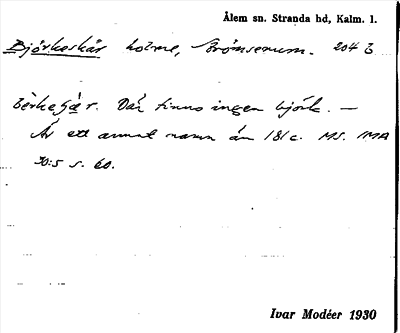 Ålem sn. Stranda hd, Kalm. l.
Björkeskär holme, Strömserum. 204 b
bèrkeʃǽr. Där finns ingen björk. —
Är ett annat namn än 181c. MS. MA
30:5 s. 60.
Ivar Modéer 1930